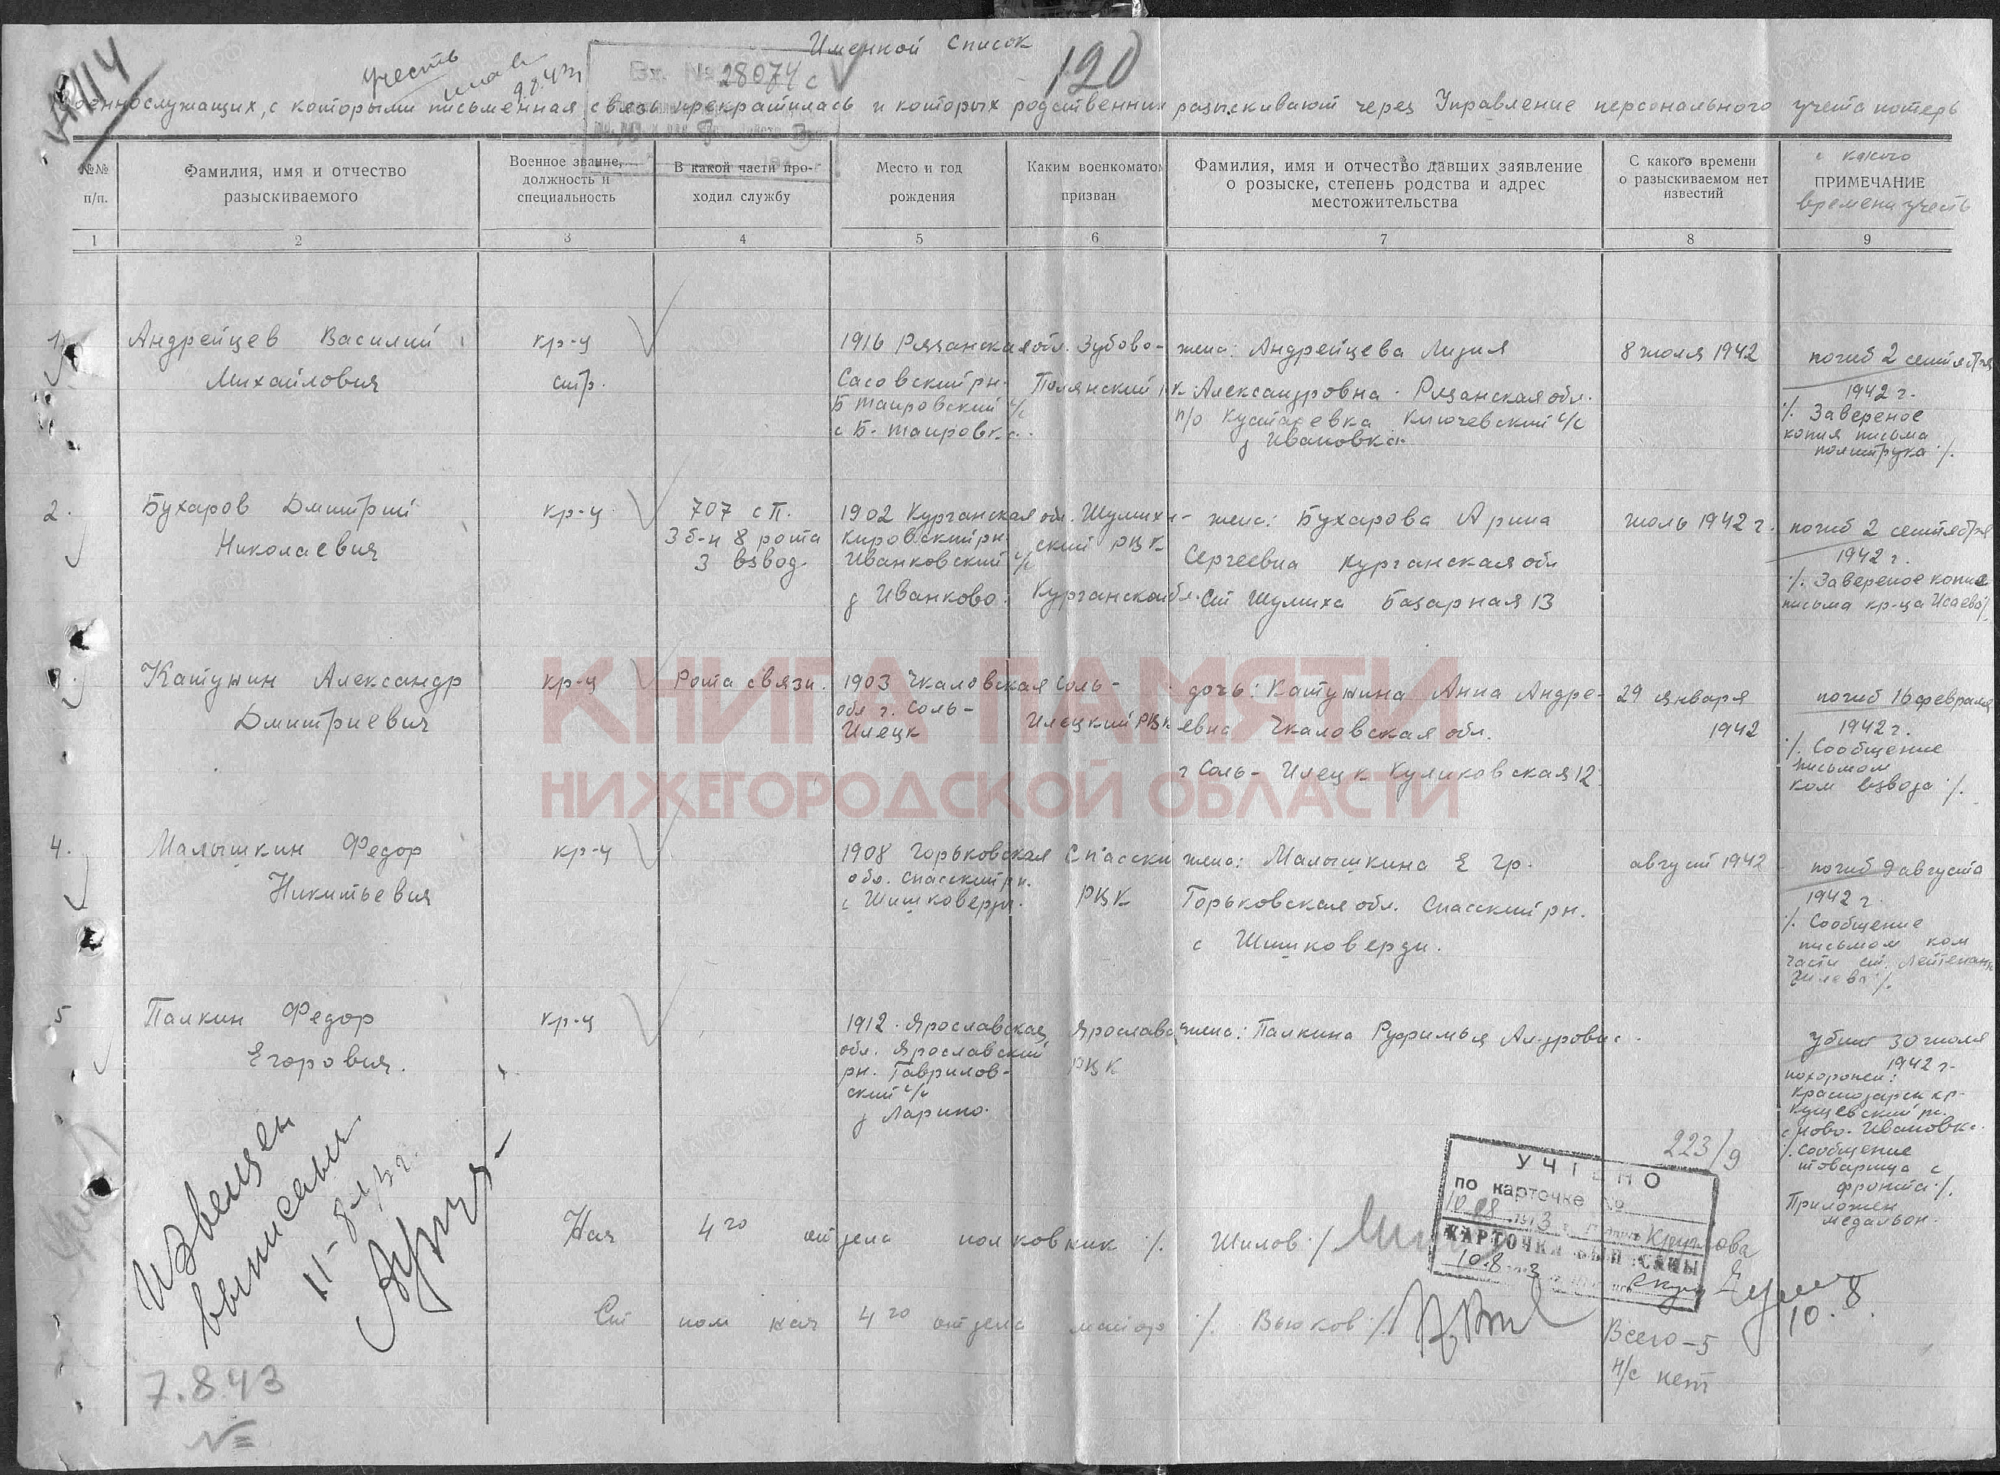 Именной список
120
учесть
9.8.43г
Вх. № 28074с
военнослужащих, с которыми письменная связь прекратилась и которых родственники разыскивают через Управление персонального учета потерь
№№ п/п.
Фамилия, имя и отчество разыскиваемого
Военное звание, должность и специальность
В какой части проходил службу
Место и год рождения
Каким военкоматом призван
Фамилия, имя и отчество давших заявление о розыске, степень родства и адрес местожительства
С какого времени о разыскиваемом нет известий
с какого
ПРИМЕЧАНИЕ
времени учесть
1 2 3 4 5 6 7 8 9
1
Андрейцев Василий
Михайлович
кр-ц
стр.
1916 Рязанская обл.
Сасовский рн.
Б таировский с/с
с Б-таировка.
Зубово-
Полянский
жена: Андрейцева Лидия
Александровна. Рязанская обл.
п/о Кустаревка Ключевский с/с
д Ивановка
8 июля 1942
погиб 2 сентября
1942 г.
/. Завереное
копия письма
политрука /.
2.
Бухаров Дмитрий
Николаевич
кр-ц
707 сП.
3 б-н 8 рота
3 взвод.
1902 Курганская обл.
Кировский рн.
Иванковский с/с
д Иванково.
Шумихи-
ский РВК
Курганской обл.
жена: Бухарова Арина
Сергеевна Курганская обл
Ст Шумиха Базарная 13
июль 1942 г.
погиб 2 сентября
1942 г.
/. Завереное копия
письма кр-ца Исаева /.
3.
Катунин Александр
Дмитриевич
кр-ц
Рота связи.
1903 Чкаловская
обл г. Соль-
Илецк
Соль-
Илецкий РВК
дочь: Катунина Анна Андре-
евна Чкаловская обл.
г Соль-Илецк Куликовская 12
29 января
1942
погиб 16 февраля
1942 г.
/. Сообщение
письмом
ком взвода /.
4.
Малышкин Федор
Никитьевич
кр-ц
1908 Горьковская
обл. Спасский рн.
с Шишковерди.
Спасски
РВК
жена: Малышкина Е Гр.
Горьковская обл. Спасский рн.
с Шишковерди.
август 1942
погиб 9 августа
1942 г.
/. Сообщение
письмом ком
части ст. Лейтенант
5
Палкин Федор
Егорович.
кр-ц
1912. Ярославская
обл. Ярославский
рн. Гаврилов-
ский с/с
д Ларино.
Ярославс
РВК
жена: Палкина
убит 30 июля
1942 г.
похоронен:
Краснодарск кр-
Кущевский рн.
с Ново-Ивановка.
/. Сообщение
товарища с
фронта /.
Приложен
медальон.
223/9
Извещен
выписаны
11-8
7.8.43
№
Нач 4го отдела полковник /. Шилов /
Ст пом нач 4го отдела майор /. Вьюков /
УЧТЕНО
по карточке №
10.08 1943 г.
КАРТОЧКА ВЫПИСАНЫ
10.8
10.8.
Всего-5
н/с нет
КНИГА ПАМЯТИ
НИЖЕГОРОДСКОЙ ОБЛАСТИ